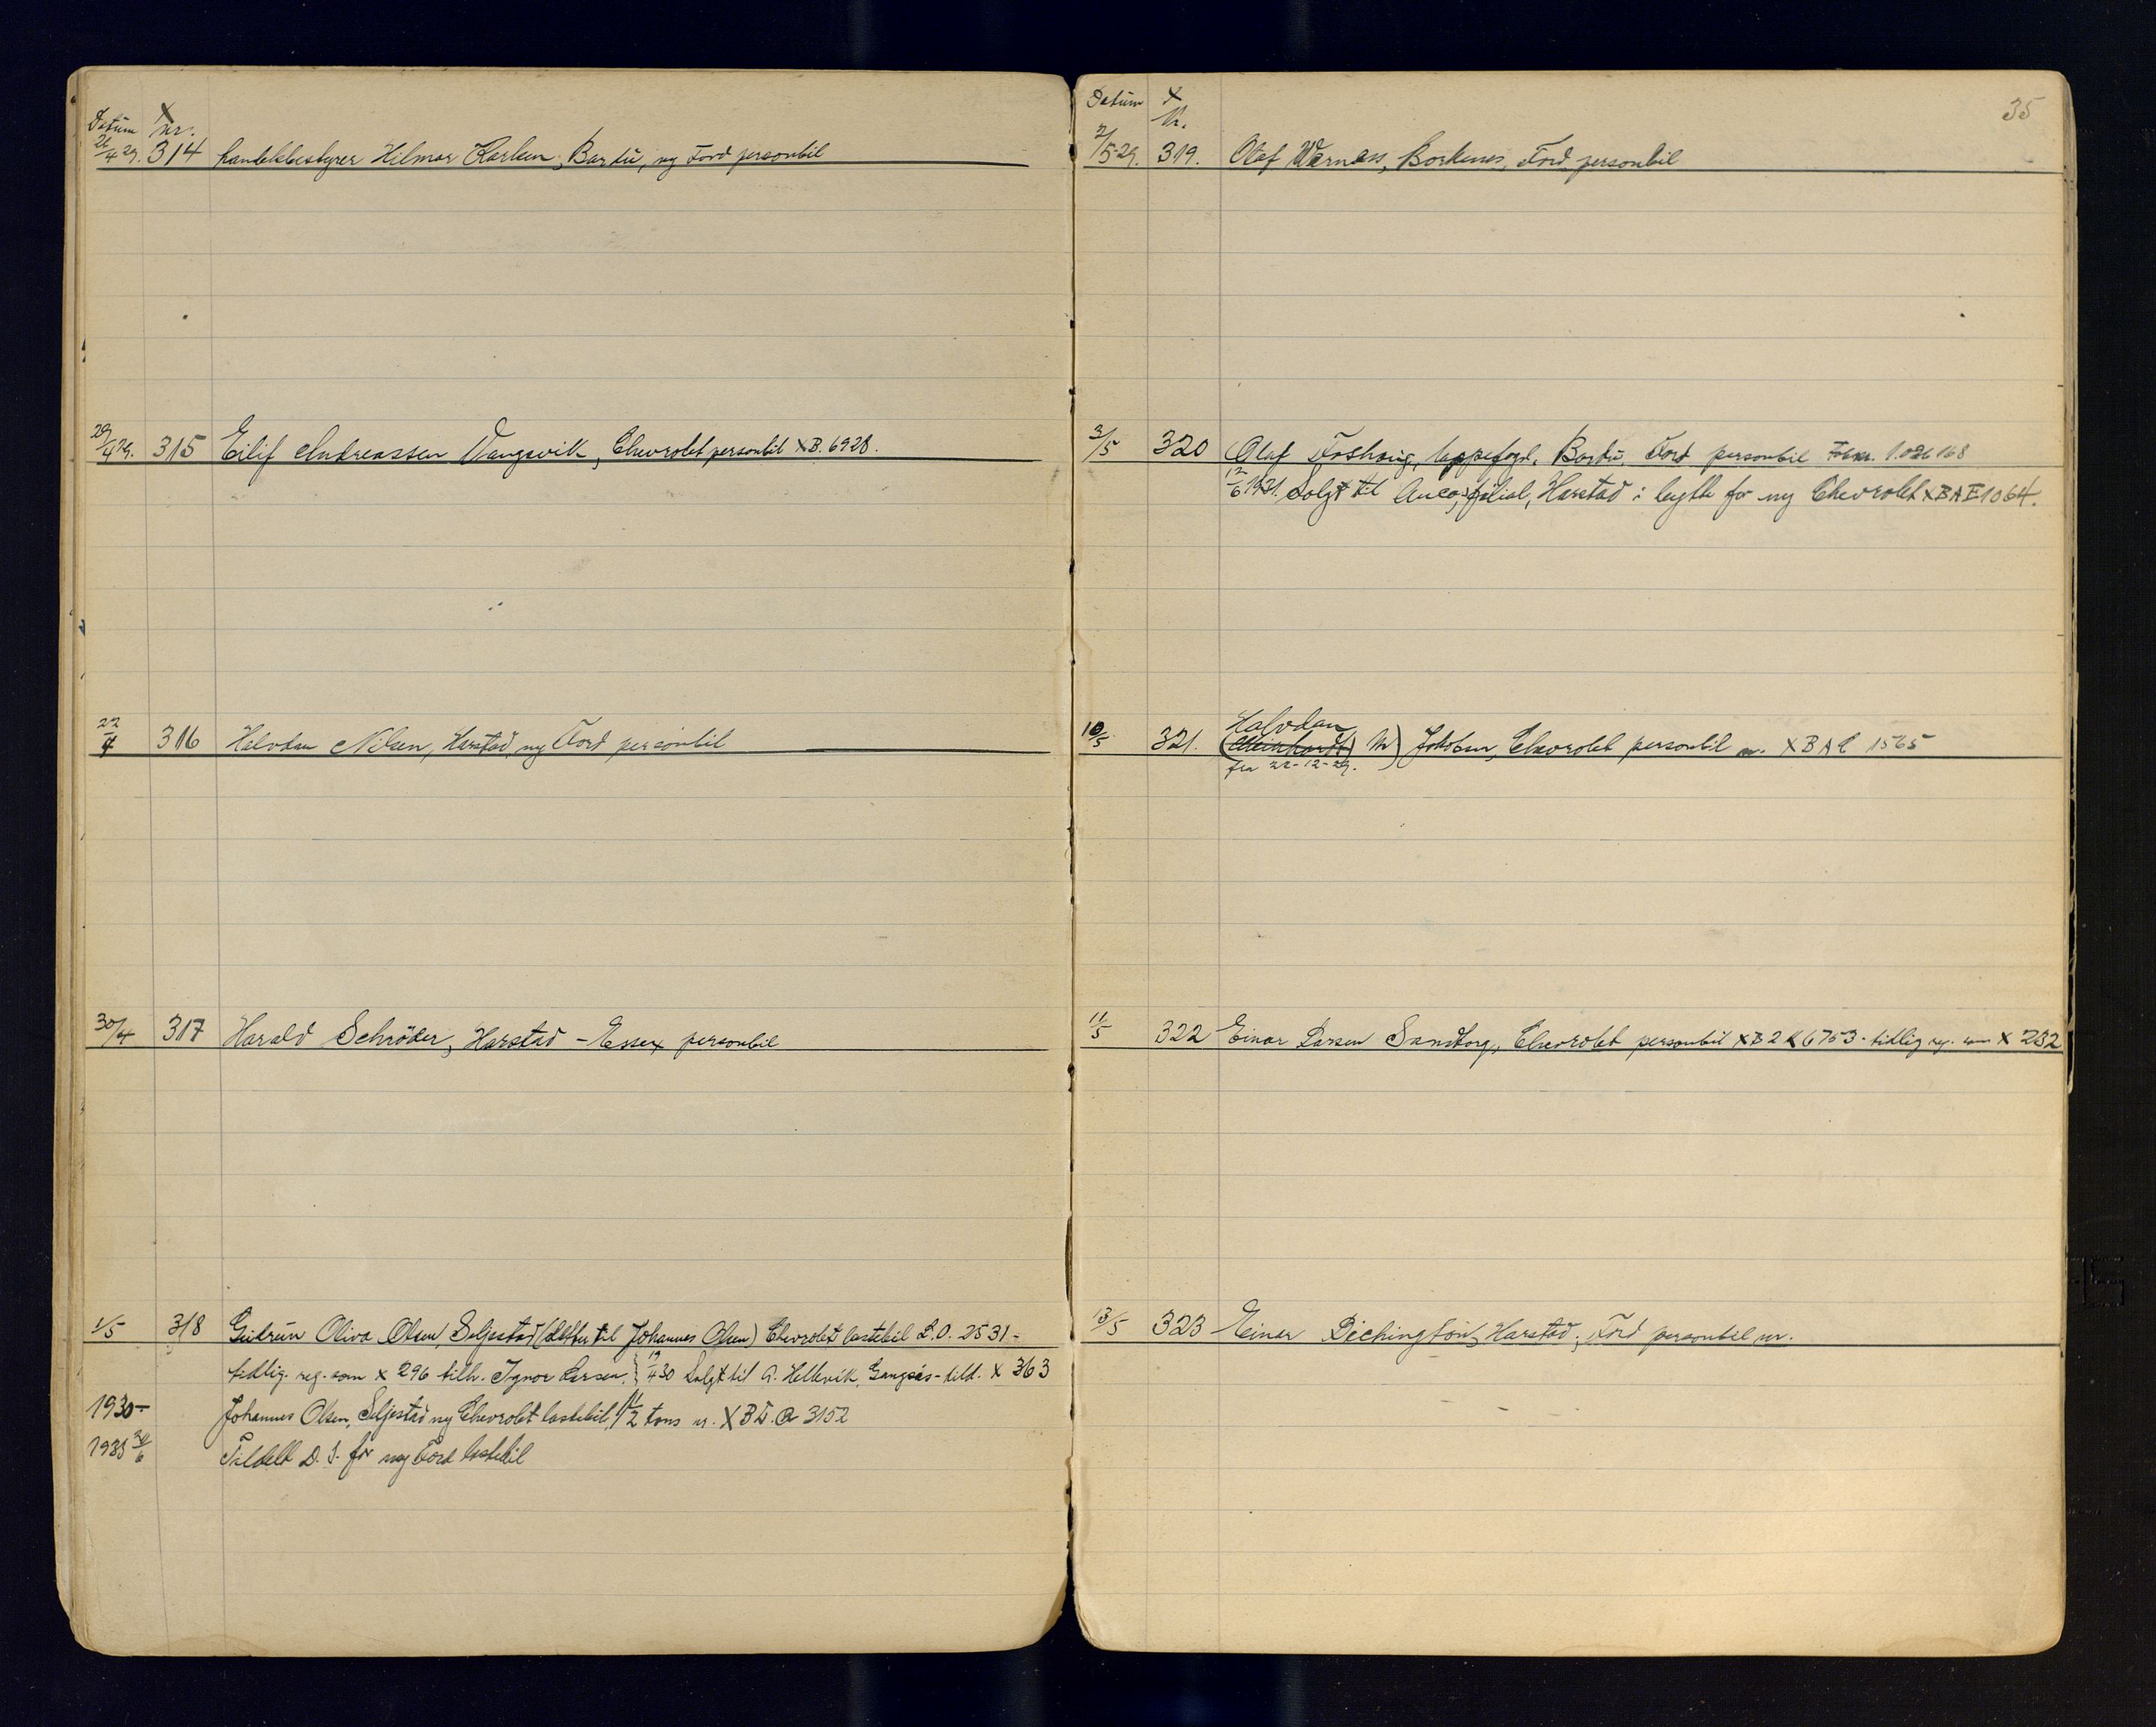 Datum X nr.
26/4 29. 314 handelsbestyrer Hilmar Karlsen, Bardu, ny Ford personbil
29/4 29. 315 Eilif Andreassen Vangsvik, Chevrolet personbil XB. 6928.
22/4 316 Halvdan Nilsen, Harstad, ny Ford personbil
30/4 317 Harald Schröder, Harstad - Essex personbil
1/5 318 Gudrun Oliva Olsen, Seljestad (datter til Johannes Olsen) Chevrolet lastebil L.O. 2531 -
tidlig. reg. som x 296 tilh. Ignor Larsen. } 19/4 30 Solgt til A. Hellevik, Gangsås - tild. x 363
1930 - Johannes Olsen, Seljestad ny Chevrolet lastebil, 1 1/2 tons nr. X B L. Q 3152
1935 30/6 Tildelt D. S. for ny Ford lastebil
35
Datum X Nr.
2/5-29. 319. Olaf Wernæss, Borkenes, Ford personbil
3/5 320 Olaf Foshaug, lappefogd, Bardu, Ford personbil 1.026168
12/6 1931. Solgt til filial, Harstad i bytte for ny Chevrolet X B A E 1064.
Halvdan
10/5 321. (Meinhardt) M) Jakobsen, Chevrolet personbil nr. X B A E 1565
fra 22-12-29.
11/5 322 Einar Larsen Sandtorg, Chevrolet personbil X B 2 K 6753 - tidlig reg. som X 232
13/5 323 Einar Harstad, Ford personbil nr.